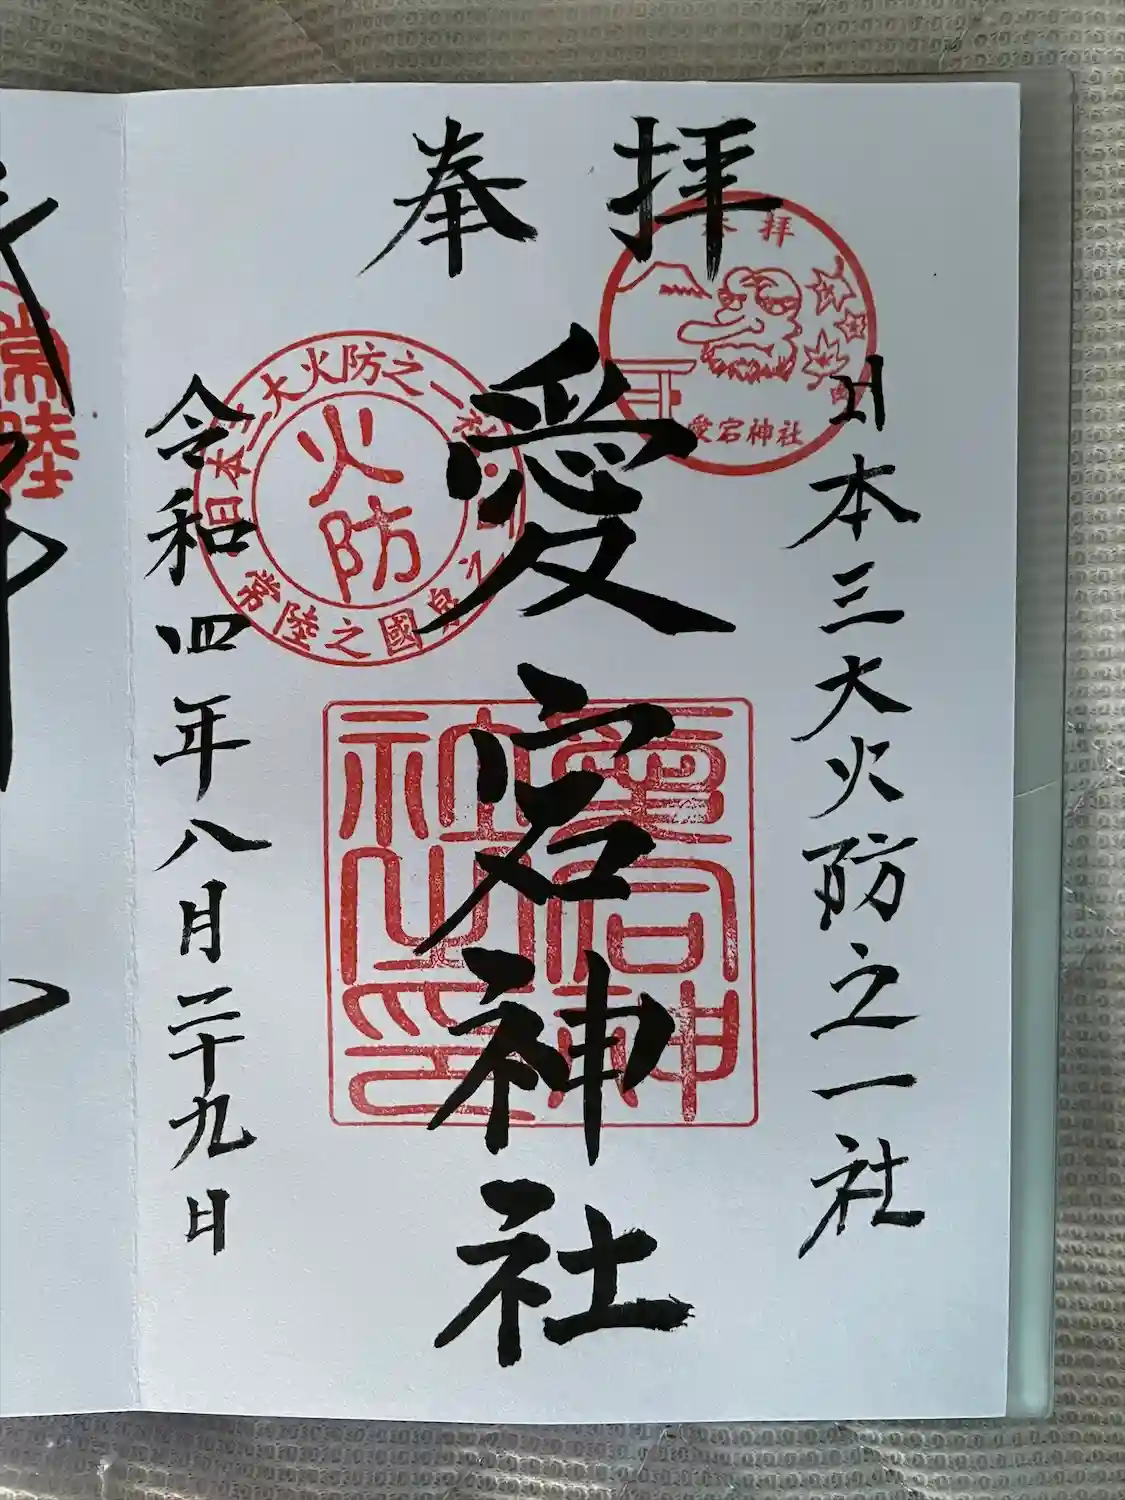 奉拝
日本三大火防之一社
愛宕神社
令和四年八月二十九日
奉拝
愛宕神社
日本三大火防之一社
火防
常陸之國
愛宕神社之印
常陸